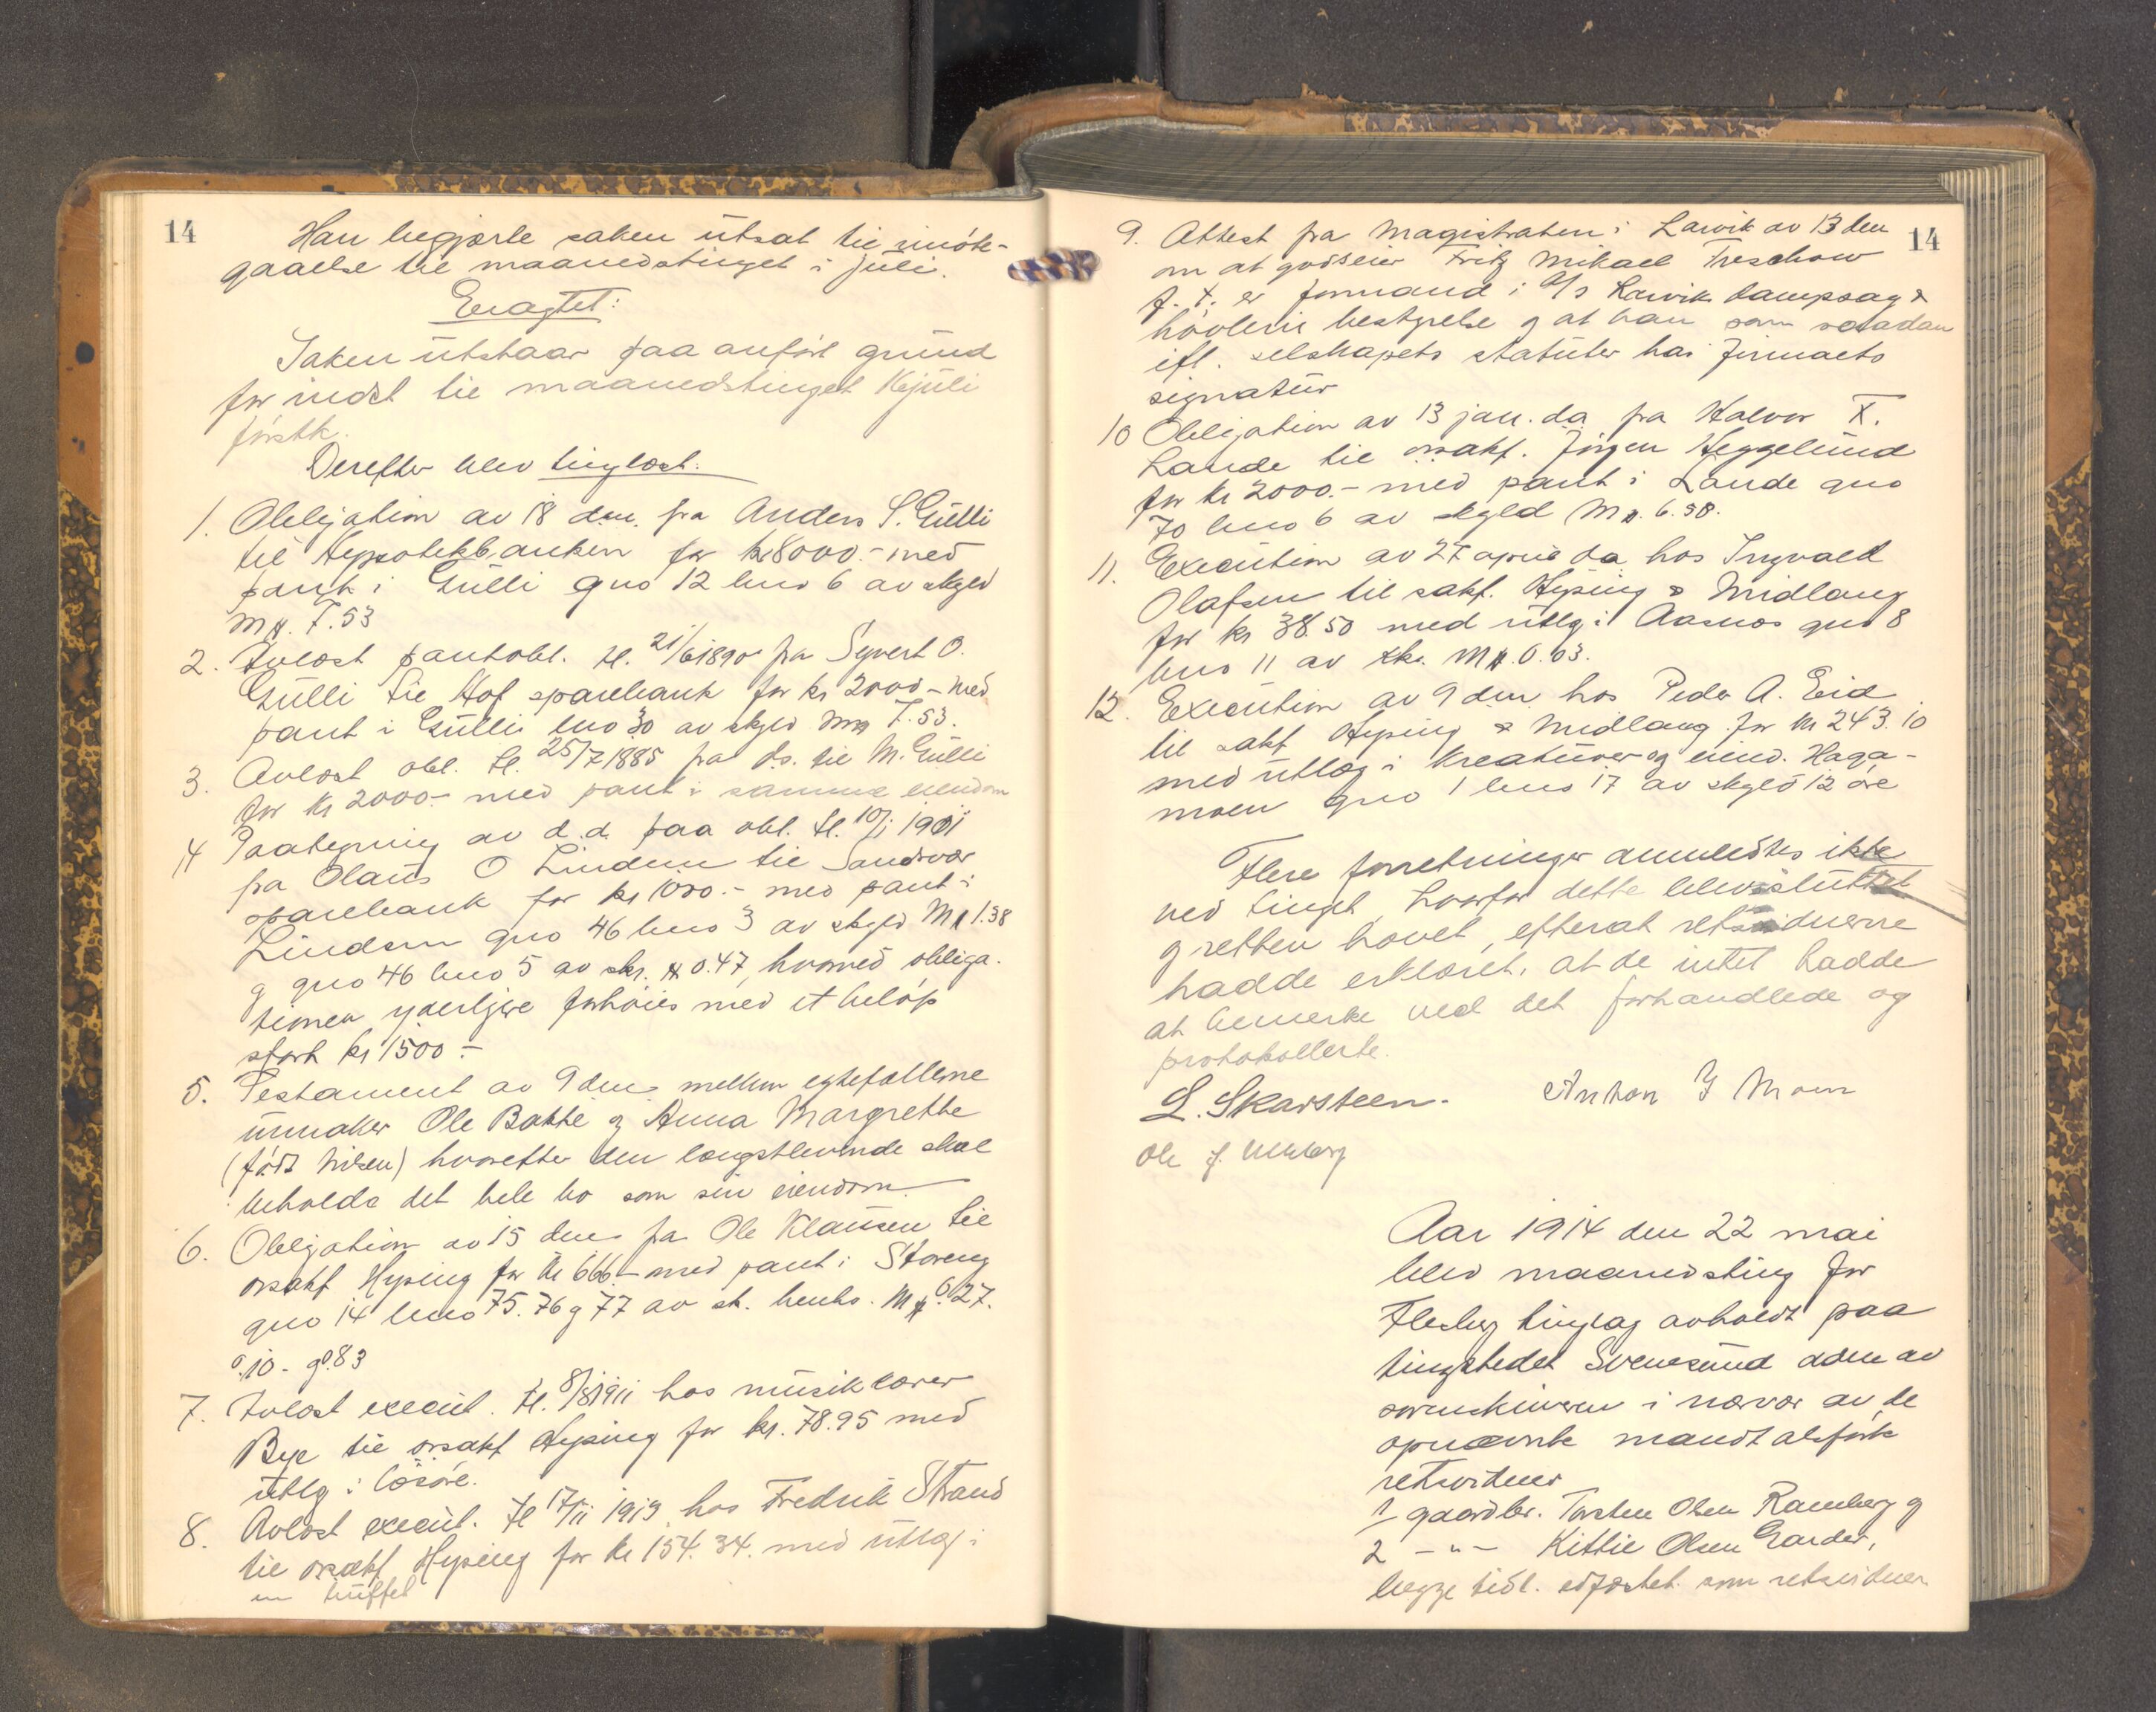 14
Han begjærte saken utsat til imøte-
gaaelse til maanedstinget i juli.
Eragtet:
Saken utstaar paa anført grund
for indst til maanedstinget juli
førstk.
Derefter blev tinglæst:
1. Obligation av 18 dm. fra Anders S. Gulli
til Hypotekbanken for kr 8000.- med
pant i Gulli gno 12 bno 6 av skyld
M 7.53
2. Avløst pantobl. tl. 21/6 1890 fra Syvert O.
Gulli til Hof sparebank for kr 2000 - med
pant i Gulli lno 30 av skyld M 7.53.
3. Avløst obl. tl. 25/7 1885 fra ds. til M. Gulli
for kr 2000.- med pant i samme eiendom
4 Paategning av d.d. paa obl. tl. 10/1 1901
fra Olaus O Lindem til Sandsvær
sparebank for kr 1000.- med pant i
Lindem gno 46 bno 3 av skyld M 1.38
g gno 46 bno 5 av sk. 0.47, hvorved obliga-
tionen yderligere forhøies med et beløp
stort kr 1500.-
5. Testament av 9 dm. mellem egtefællerne
urmaker Ole Bakke og Anna Margrethe
(født Nilsen) hvorefter den længstlevende skal
beholde det hele bo som sin eiendom.
6. Obligation av 15 dm. fra Ole Klausen til
orsakf Hysing for kr 666.- med pant i Storeng
gno 14 bno 75. 76 g 77 av sk. henhs. M 0.27.
0.10 - g 0.83
7. Avløst execut. tl. 8/8 1911 hos musiklærer
Bye til orsakf Hysing for kr. 78.95 med
utlg i løsøre.
8. Avløst execut. tl 17/11 1913 hos Fredrik Strand
til orsakf Hysing for kr 154.34. med utlæg i
en tuffel
14
9. Attest fra Magistraten i Larvik av 13 den
om at godseier Fritz Mikael Treschow
f. t. er formand i A/S Larvik dampsag &
høvleris bestyrelse g at han som saadan
ifl. selskapets statuter har firmaets
signatur
10 Obligation av 13 jan. da fra Halvor T.
Lande til orsakf. Jørgen Heggelund
for kr 2000.- med pant i Lande gno
70 bno 6 av skyld M 6.58.
11. Execution av 27 april da hos Ingvald
Olafsen til sakf. Hysing & Midlang
for kr 38.50 med utlg i Aasnos gno 8
bno 11 av sk. M 0.03.
12. Execution av 9 dm hos Peder A. Eid
til sakf Hysing & Midlang for kr 243.10
med utlæg i kreaturer og eiend. Haga-
moen gno 1 bno 17 av skyld 12 øre
Flere forretninger anmeldtes ikke
ved tinget, hvorfor dette blev sluttet
g retten hævet, efterat retsvidnerne
hadde erklæret, at de intet hadde
at bemerke ved det forhandlede og
protokollerte.
L. Skarsteen. Anton J Moen
Ole J.
Aar 1914 den 22 mai
blev maanedsting for
Flesberg tinglag avholdt paa
tingstedet Svenesund adm av
sorenskriveren i nærvær av de
opnævnte mandtalsførte
retsvidner
1 gaardbr. Torsten Olsen Ramberg g
2 -"- Kittil Olsen Garder,
begge tidl. edfæstet som retsvidner